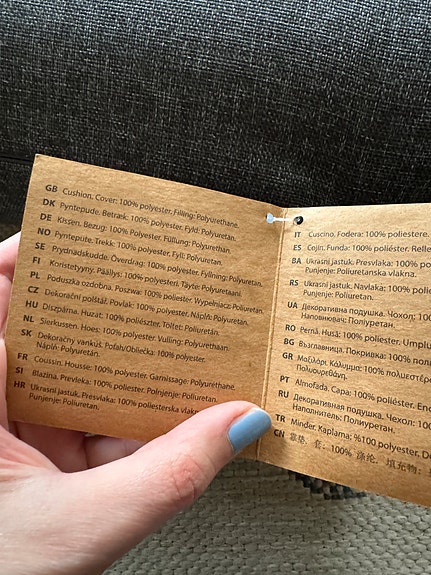 GB Cushion. Cover: 100% polyester, Filling: Polyurethane.
DK Pyntepude. Betræk: 100% polyester, Fyld: Polyurethan.
DE Kissen. Bezug: 100% Polyester, Füllung: Polyurethan.
NO Pyntepute. Trekk: 100% polyester, Fyll: Polyuretan.
SE Prydnadskudde. Överdrag: 100% polyester, Fyllning: Polyuretan.
FI Koristetyyny. Päällys: 100% polyesteri, Täyte: Polyuretaani.
PL Poduszka ozdobna. Poszwa: 100% poliester, Wypełniacz: Poliuretan.
CZ Dekorační polštář. Povlak: 100% polyester, Náplň: Polyuretan.
HU Díszpárna. Huzat: 100% poliészter, Töltet: Poliuretán.
NL Sierkussen. Hoes: 100% polyester, Vulling: Polyurethaan.
SK Dekoračný vankúš. Poťah/Obliečka: 100% polyester,
Náplň: Polyuretán.
FR Coussin. Housse: 100% polyester, Garnissage: Polyuréthane.
SI Blazina. Prevleka: 100% poliester, Polnjenje: Poliuretan.
HR Ukrasni jastuk. Presvlaka: 100% poliesterska vlakna
Punjenje: Poliuretan.
IT Cuscino. Fodera: 100% poliestere.
ES Cojín. Funda: 100% poliéster. Relle
BA Ukrasni jastuk. Presvlaka: 100%
Punjenje: Poliuretanska vlakna.
RS Ukrasni jastuk. Navlaka: 100% polie
Punjenje: Poliuretan.
UA Декоративна подушка. Чохол: 100
Наповнювач: Поліуретан.
RO Pernă. Husă: 100% poliester, Umplu
BG Възглавница. Покривка: 100% пол
GR Μαξιλάρι. Κάλυμμα: 100% πολυεστέρ
Πολυουρεθάνη.
PT Almofada. Capa: 100% poliéster, Enc
RU Декоративная подушка. Чехол: 100
Наполнитель: Полиуретан.
TR Minder. Kaplama: %100 polyester, Do
CN 靠垫. 套: 100% 涤纶, 填充物: